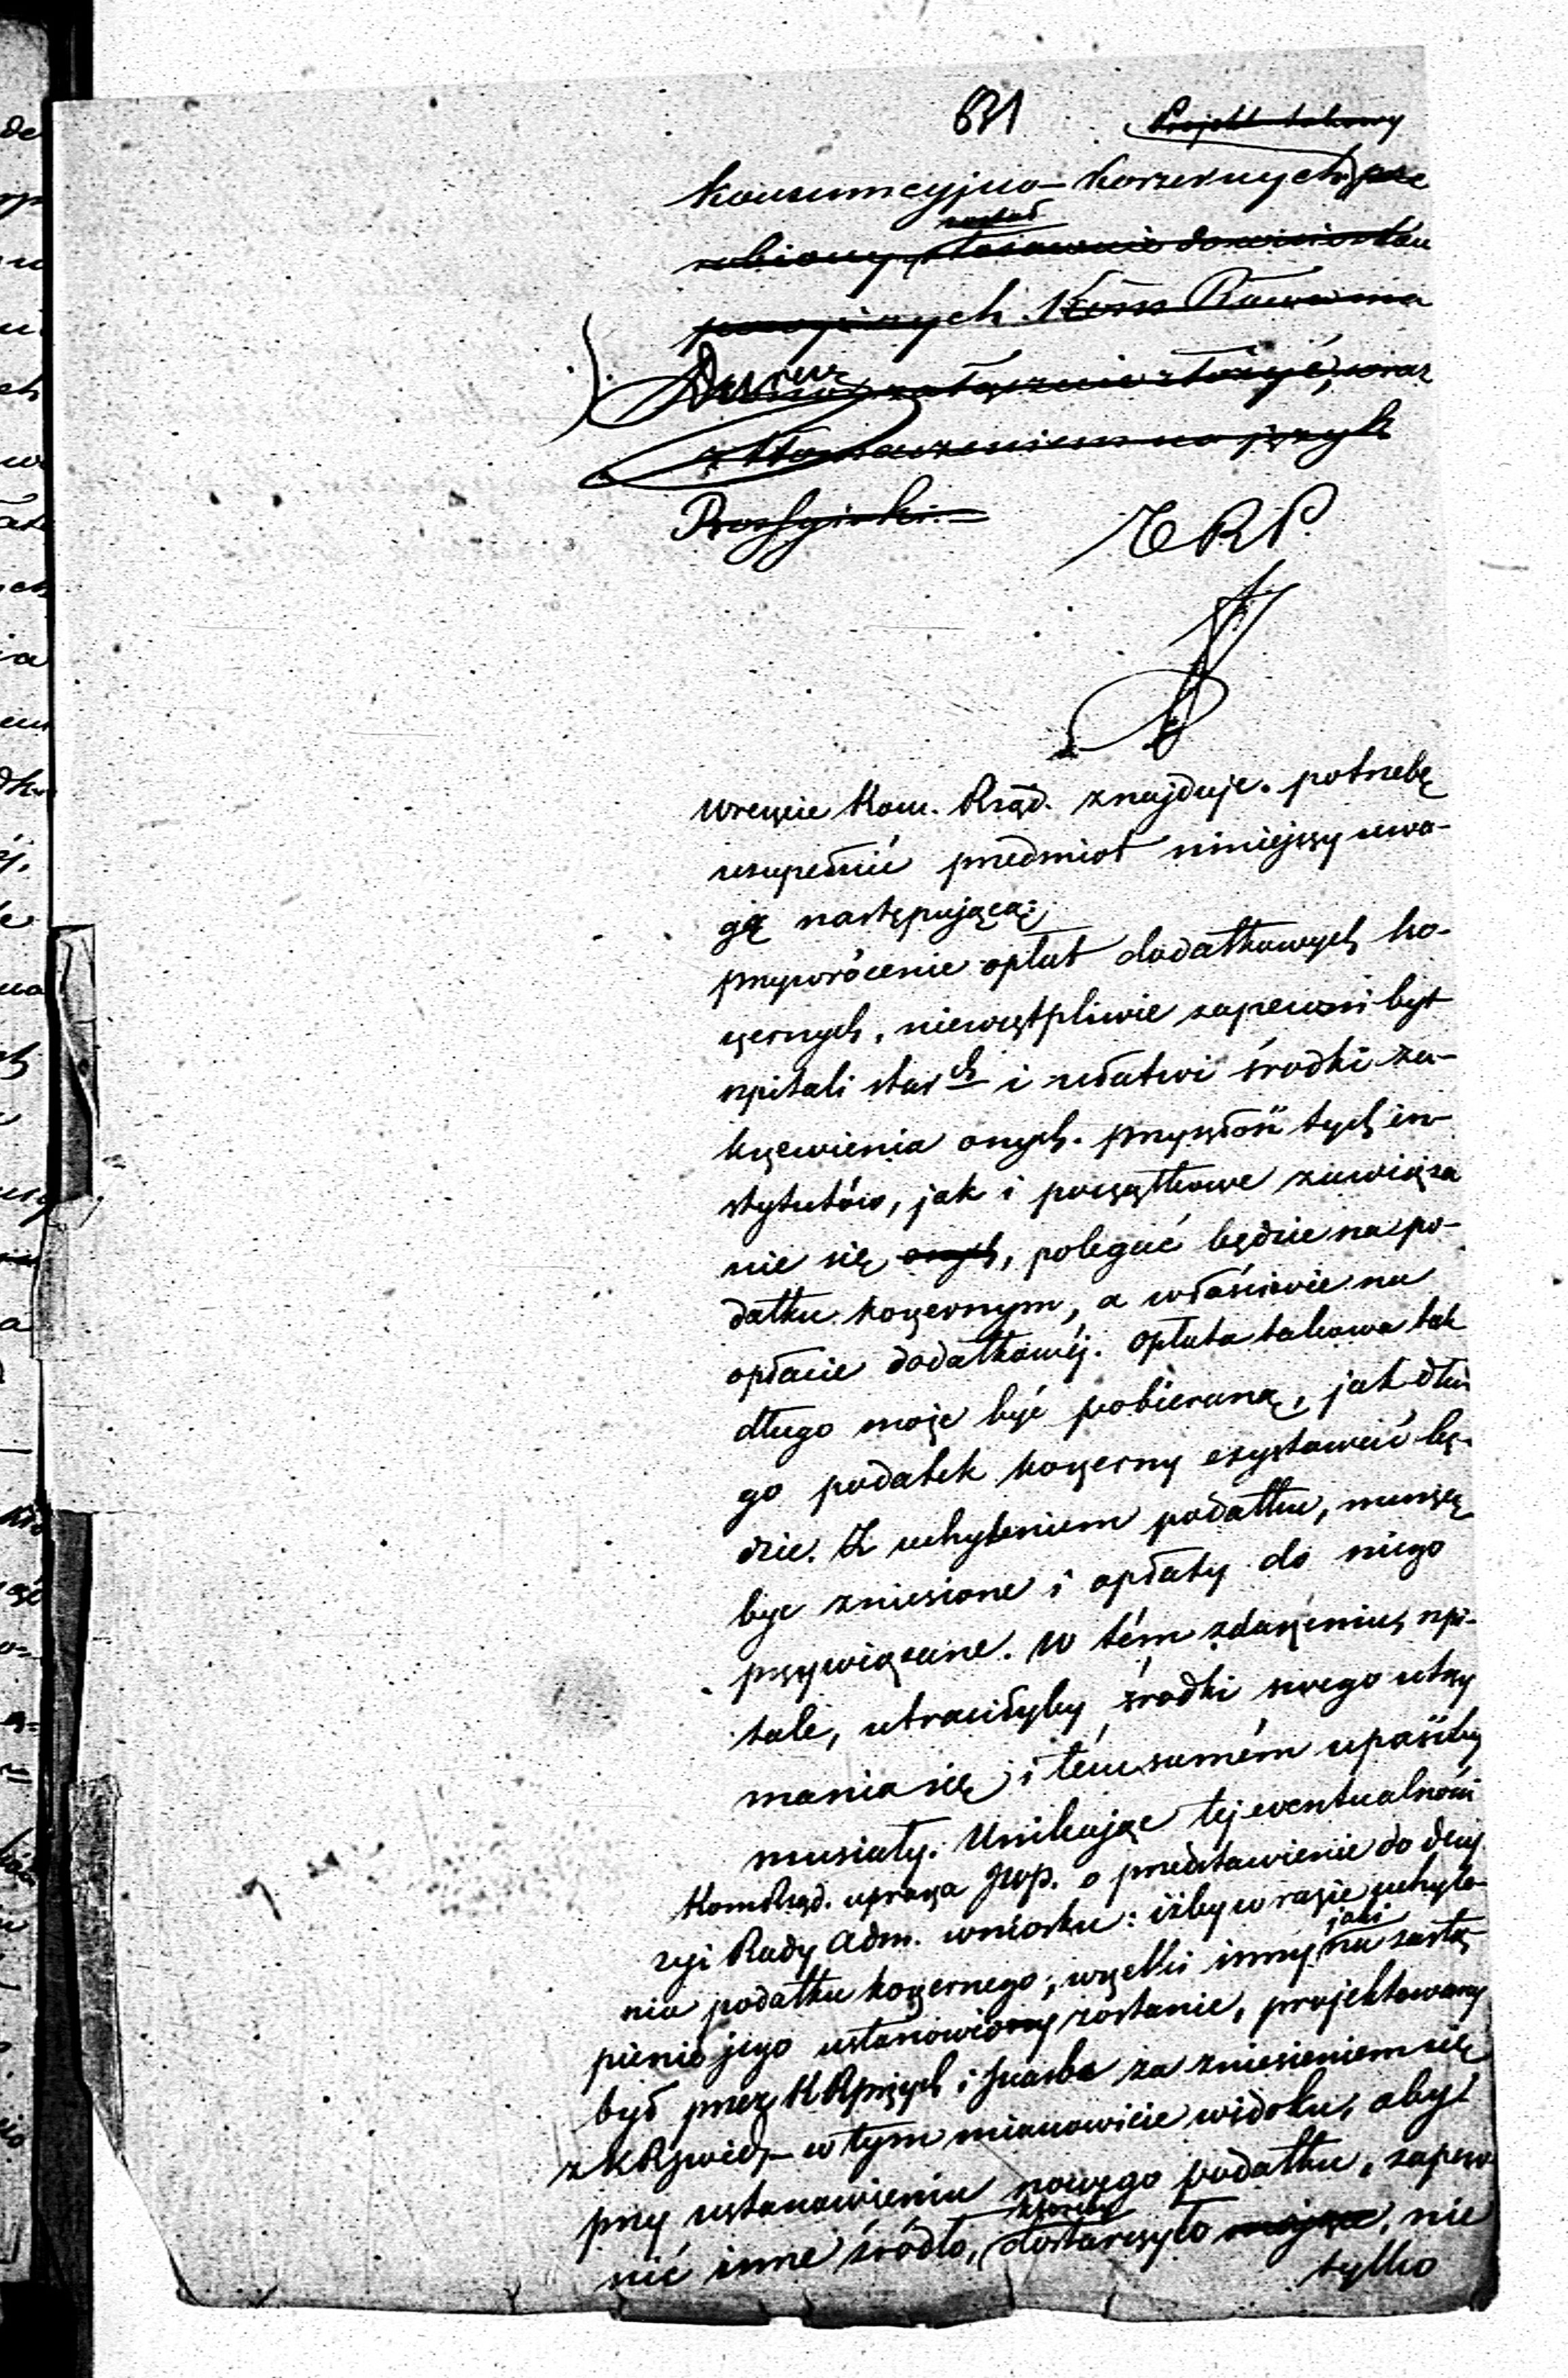 631
Projekt takowy
konsumcyjno-koszernych prze
został
robiony, stosownie do wniosków
powyższych. Kom Rządowa ma
załącznie złożyć, wraz
z tłomaczeniem na język
Rossyiski.
Wreszcie Kom. Rząd. znajduje potrzebę
uzupełnić przedmiot niniejszy uwa-
gą następującą:
przywrócenie opłat dodatkowych ko-
szernych, niewątpliwie zapewni byt
szpitali star ch i ułatwi środki za-
krzewienia onych. przyszłość tych in-
stytutów, jak i początkowe zawiąza
nie się onych, polegać będzie na po-
datku koszernym, a właściwie na
opłacie dodatkowéj. Opłata takowa tak
długo może być pobieraną, jak dłu
go podatek koszerny exystować bę-
dzie. Z uchyleniem podatku, muszą
być zniesione i opłaty do niego
przywiązane. W tém zdarzeniu, szpi-
tale, utraciłyby środki swego utrzy
mania się i tém samém upaśćby
musiały. Unikając tej eventualności
Kom Rząd. uprasza JWP. o przedstawienie do decy
zyi Rady Adm. wniosku: iżby w razie uchyle-
nia podatku koszernego, wszelki inny jaki na zastą-
pienie jego ustanowiony zostanie, projektowany
był przez KRPrzych i Skarbu za zniesieniem się
z KRSWiD, w tym mianowicie widoku, aby
przy ustanowieniu nowego podatku, zapew
nić inne źródło, któreby dostarczyło mające, nie
tylko